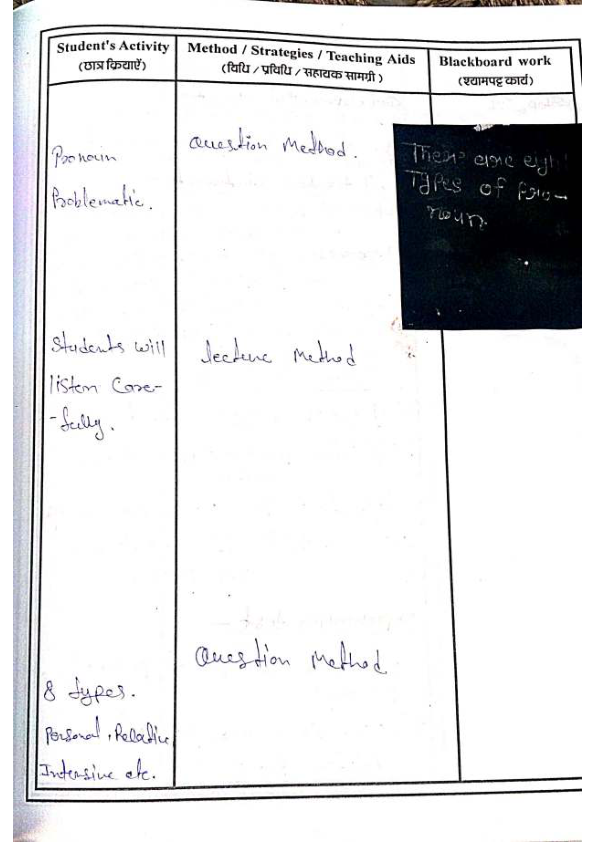 Student's Activity
(छात्र क्रियाएँ)
Method / Strategies / Teaching Aids
(विधि / प्रविधि / सहायक सामग्री)
Blackboard work
(श्यामपट्ट कार्य)
Pronoun
Problematic.
Question Method.
There are eight
Types of Pro-
noun.
Students will
listen Care-
-fully.
lecture Method
Question Method
8 types.
Personal, Relative
Intensive etc.